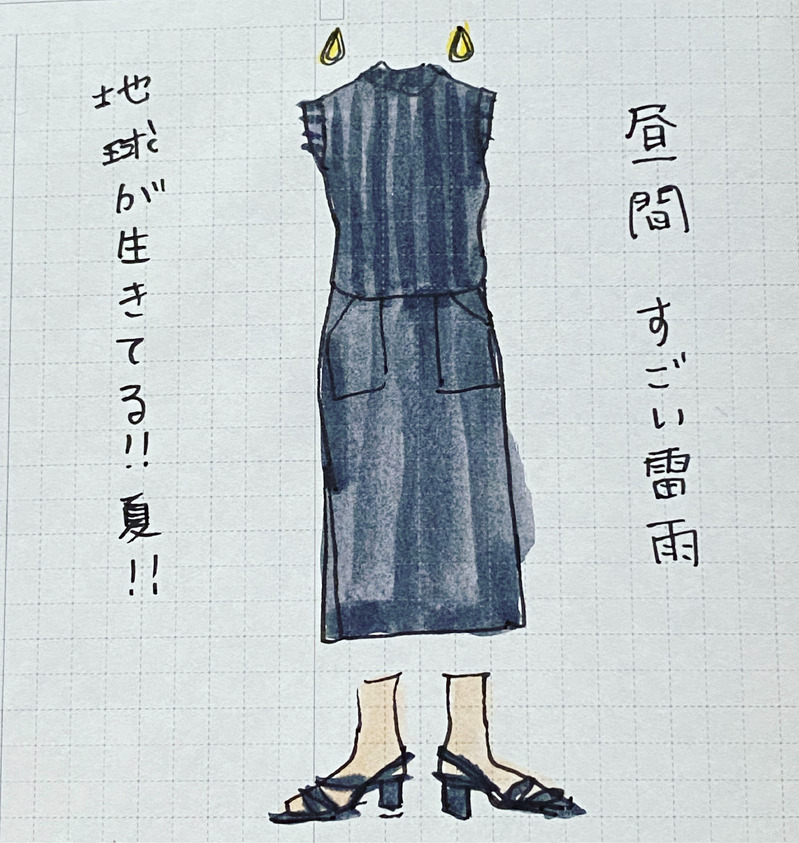 昼間 すごい雷雨
地球が生きてる!! 夏!!